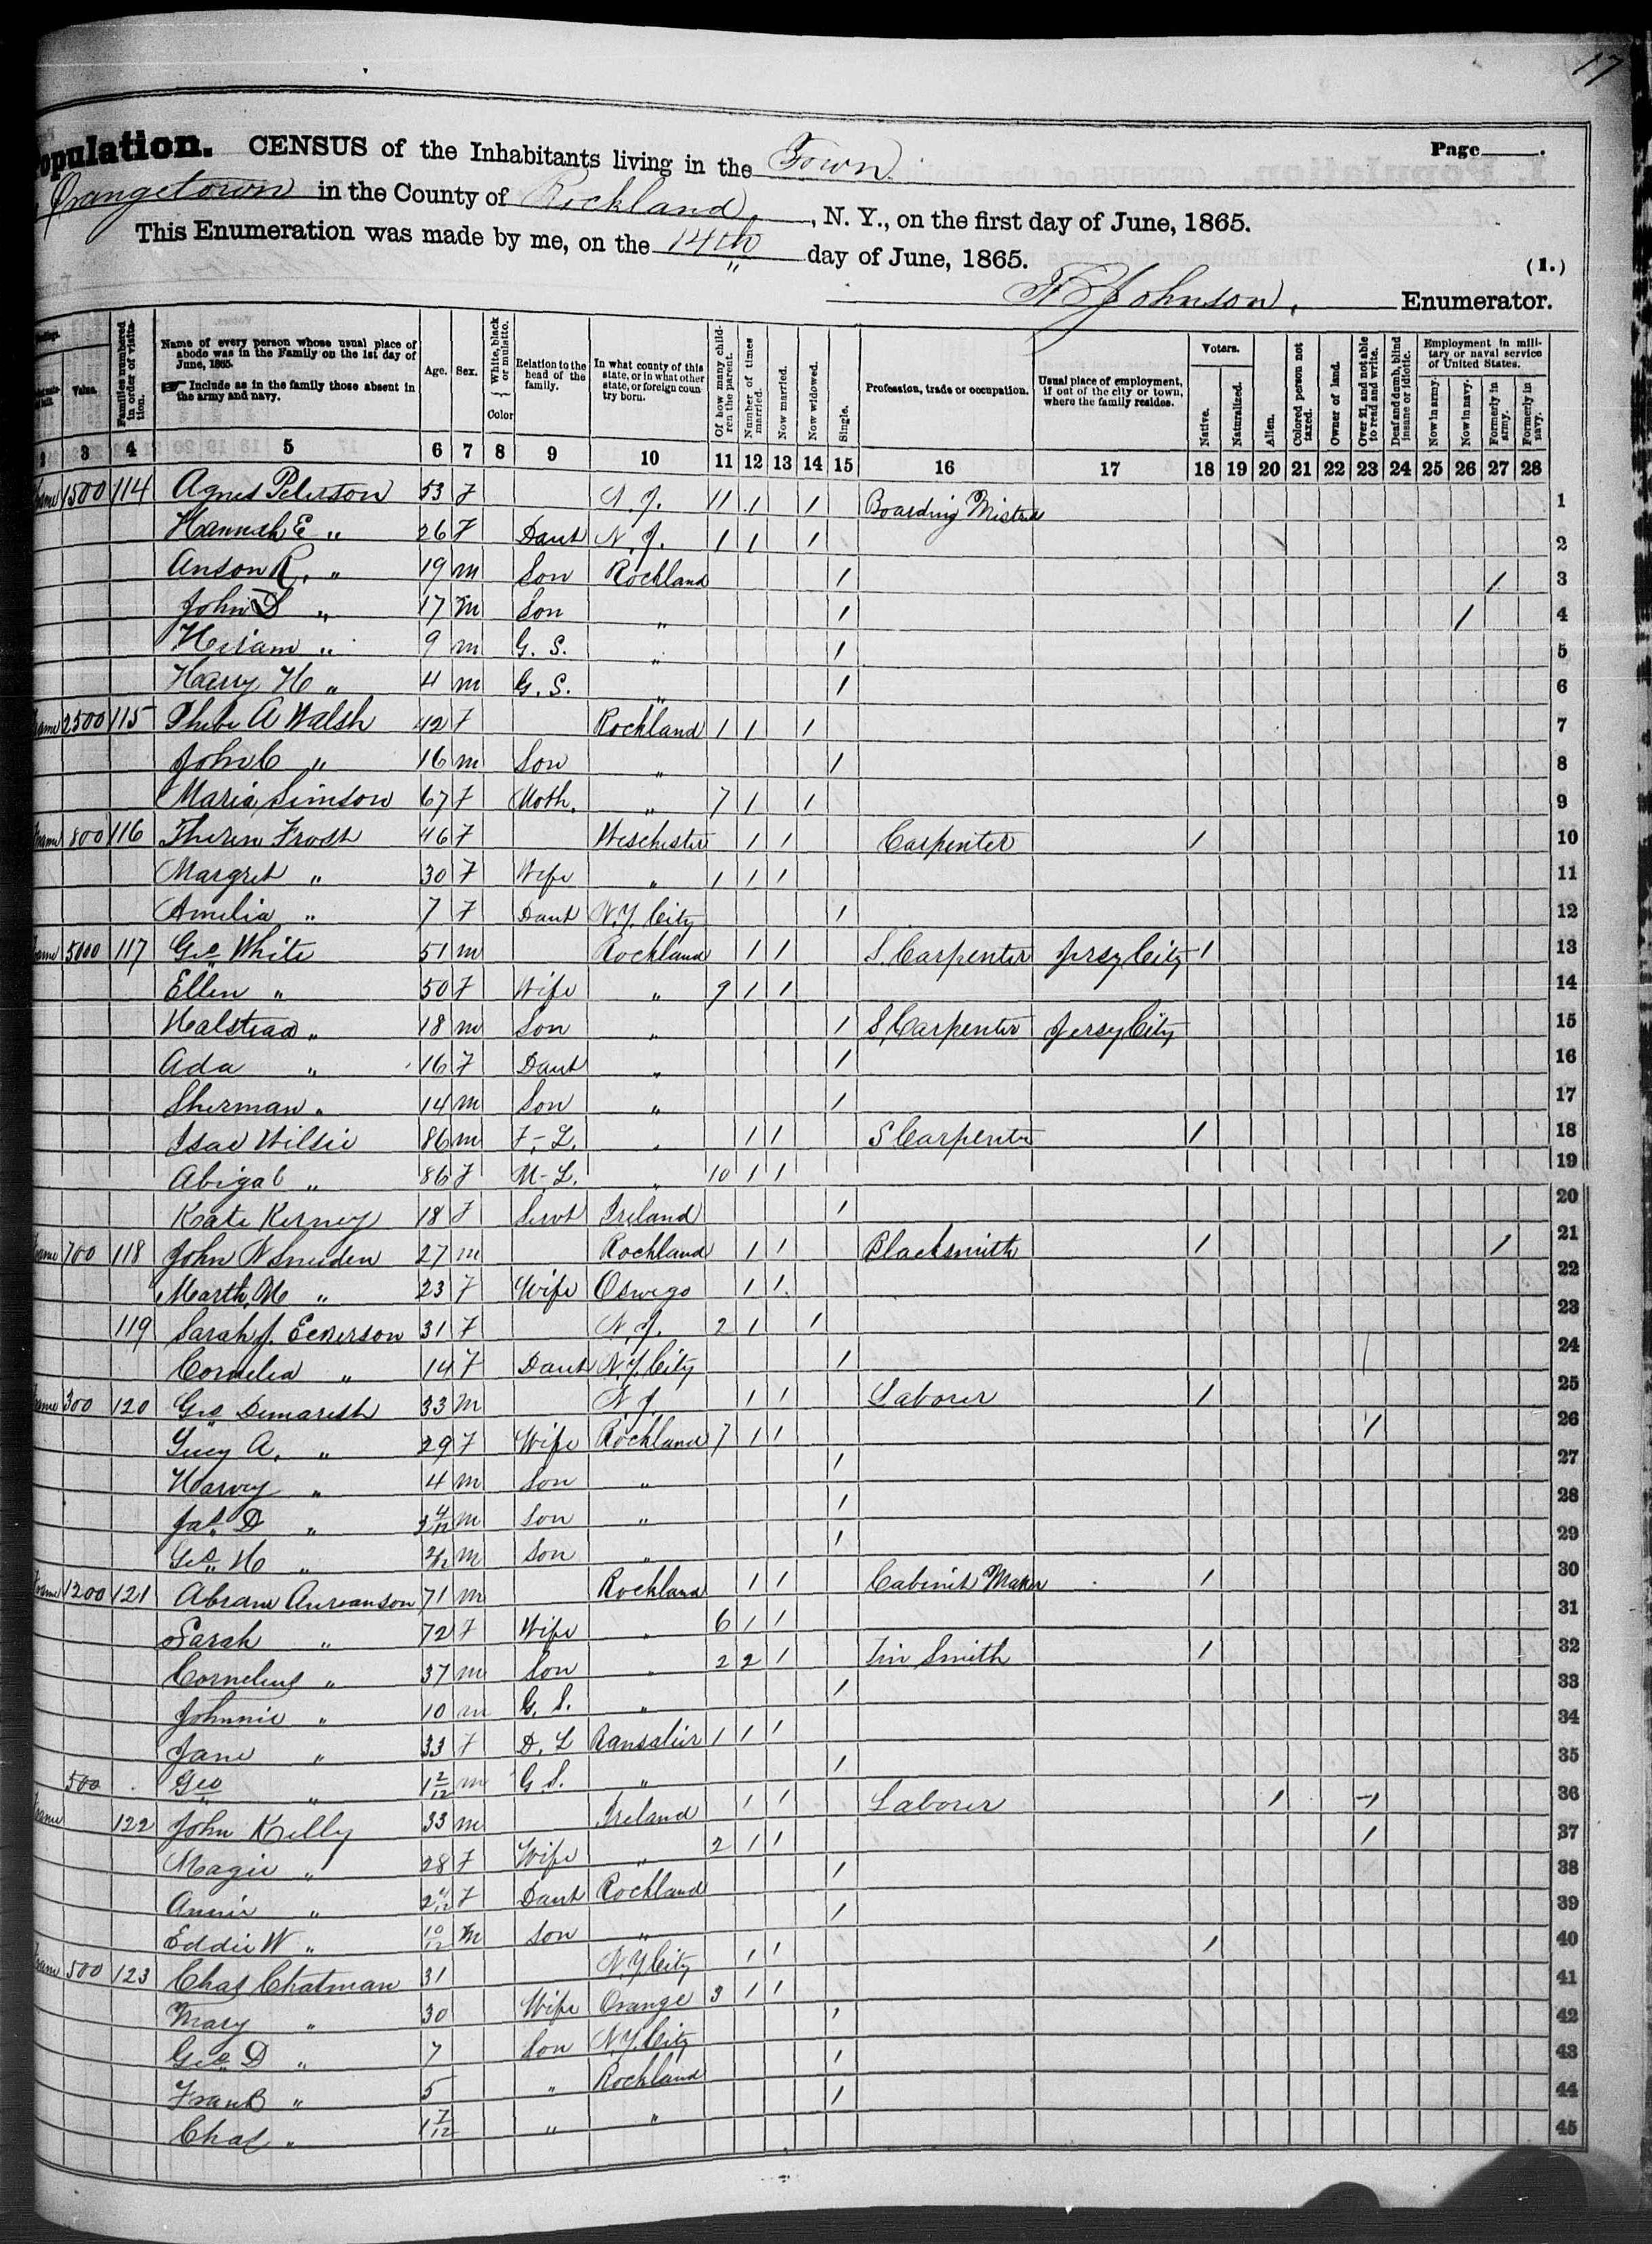 17
Population. CENSUS of the Inhabitants living in the Town Page
Orangetown in the County of Rockland, N. Y., on the first day of June, 1865.
This Enumeration was made by me, on the 14th day of June, 1865.
(1.)
Johnson, Enumerator.
Value.
Families numbered in order of visitation.
Name of every person whose usual place of abode was in the Family on the 1st day of June, 1865.
Include as in the family those absent in the army and navy.
Age. Sex. White, black or mulatto. Color
Relation to the head of the family.
In what county of this state, or in what other state, or foreign country born.
Of how many children the parent. Number of times married. Now married. Now widowed. Single.
Profession, trade or occupation.
Usual place of employment, if out of the city or town, where the family resides.
Voters. Native. Naturalized. Alien. Colored person not taxed. Owner of land. Over 21, and not able to read and write. Deaf and dumb, blind insane or idiotic.
Employment in military or naval service of United States. Now in army. Now in navy. Formerly in army. Formerly in navy.
3 4 5 6 7 8 9 10 11 12 13 14 15 16 17 18 19 20 21 22 23 24 25 26 27 28
1500 114 Agnes Peterson 53 F N. J. 11 1 1 Boarding 1
Hannah E " 26 F Daut N. J. 1 1 1 2
Anson R. " 19 m Son Rockland 1 1 3
John D " 17 m Son " 1 1 4
Hiriam " 9 m G. S. " 1 5
Harry H " 4 m G. S. " 1 6
2500 115 Phebe A Walsh 42 F Rockland 1 1 1 7
John C " 16 m Son " 1 8
Maria Simson 67 F Moth. " 7 1 1 9
Frame 800 116 Theren Frost 46 F Weschester 1 1 Carpenter 1 10
Margret " 30 F Wife " 1 1 1 11
Amelia " 7 F Daut N.Y. City 1 12
5000 117 Geo White 51 m Rockland 1 1 S. Carpenter Jersy City 1 13
Ellen " 50 F Wife " 9 1 1 14
Halstead " 18 m Son " 1 S. Carpenter Jersy City 15
Ada " 16 F Daut " 1 16
Sherman " 14 m Son " 1 17
Isac Willsie 86 m F-L. " 1 1 S Carpenter 1 18
Abigal " 86 F M-L. " 10 1 1 19
Kate Kerney 18 F Servt Ireland 1 20
700 118 John W Sneden 27 m Rockland 1 1 Blacksmith 1 1 21
Marth M " 23 F Wife Oswego 1 1 22
119 Sarah J. Eckerson 31 F N. J. 2 1 1 23
Cornelia " 14 F Daut N.Y. City 1 24
300 120 Geo Demarest 33 m N J. 1 1 Laborer 1 25
Lucy A. " 29 F Wife Rockland 7 1 1 1 26
Harvey " 4 m Son " 1 27
Jas. D " 3 4/12 m Son " 1 28
Geo H " 2/12 m Son " 1 29
Frame 1200 121 Abram Auryanson 71 m Rockland 1 1 Cabinet Maker 1 30
Sarah " 72 F Wife " 6 1 1 31
Cornelius " 37 m Son " 2 2 1 Tin Smith 1 32
Johnnie " 10 m G. S. " 1 33
Jane " 33 F D. L Ransalier 1 1 1 34
500 Geo " 1 2/12 m G. S. " 1 35
Frame 122 John Kelly 33 m Ireland 1 1 Laborer 1 1 36
Magie " 28 F Wife " 2 1 1 1 37
Annie " 2 F Daut Rockland 1 38
Eddie W " 10/12 m Son " 1 39
500 123 Chas Chatman 31 N.Y City 1 1 1 40
Mary " 30 Wife Orange 3 1 1 41
Geo D " 7 Son N.Y. City 1 42
Frank " 5 " Rockland 1 43
Chas " 1 7/12 " " 1 44
45